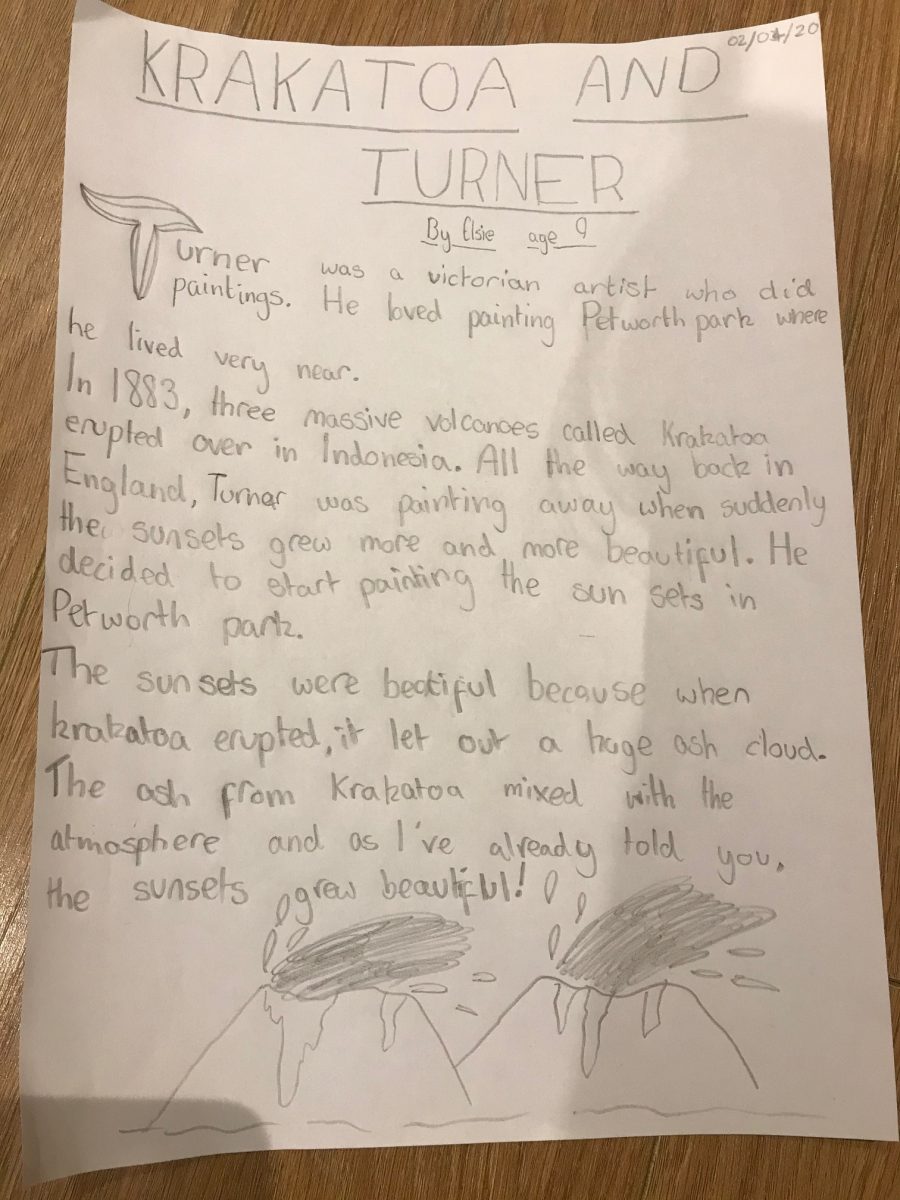 02/04/20
KRAKATOA AND
TURNER
By Elsie age 9
Turner was a victorian artist who did
paintings. He loved painting Petworth park where
he lived very near.
In 1883, three massive volcanoes called Krakatoa
erupted over in Indonesia. All the way back in
England, Turner was painting away when suddenly
the sunsets grew more and more beautiful. He
decided to start painting the sun sets in
Petworth park.
The sunsets were beatiful because when
krakatoa erupted, it let out a huge ash cloud.
The ash from Krakatoa mixed with the
atmosphere and as I've already told you,
the sunsets grew beautiful!